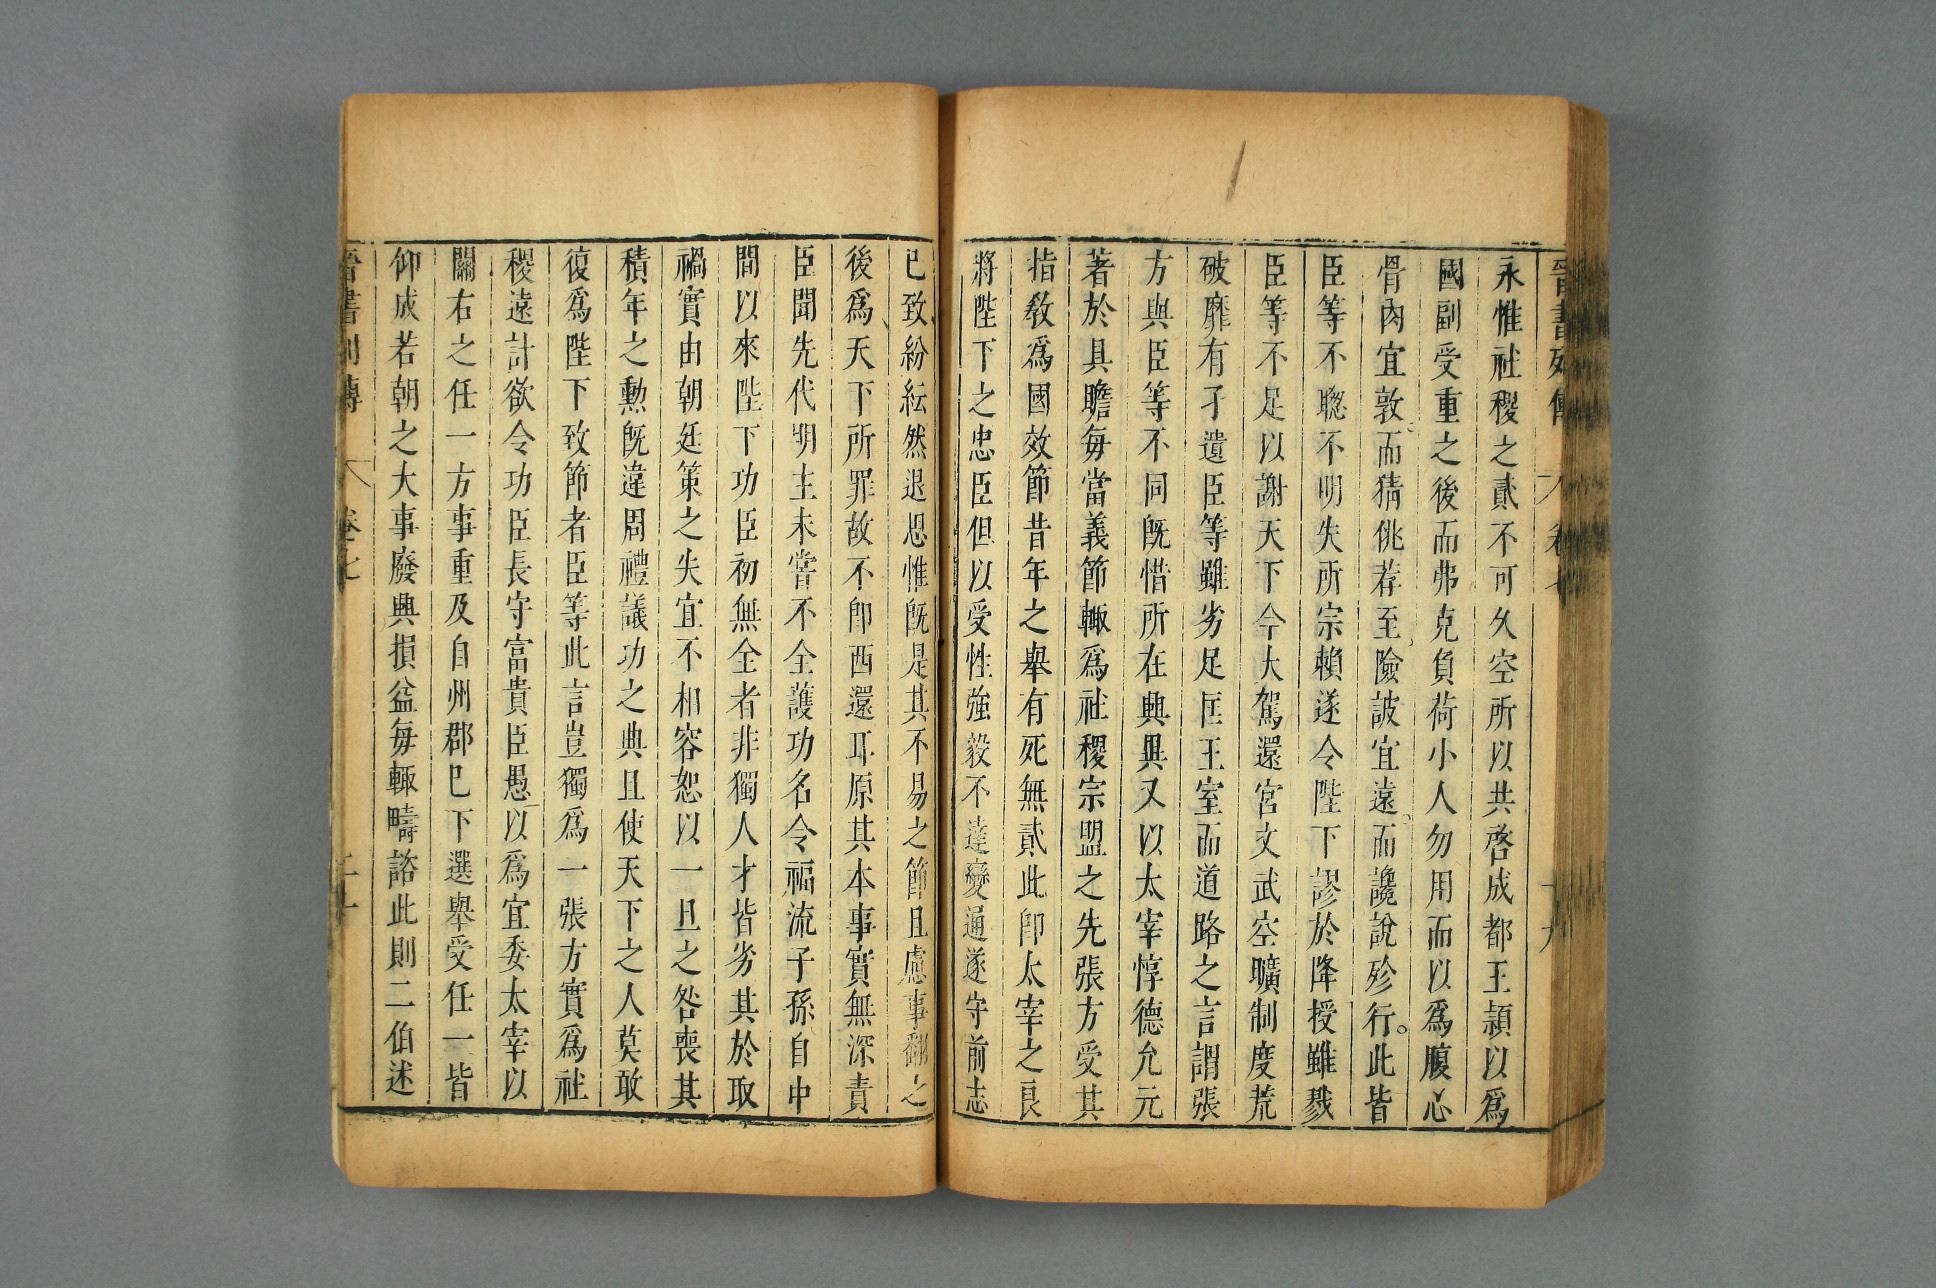 晉書列傳 卷七 十九
永惟社稷之貳不可久空所以共啓成都王頴以爲
國副受重之後而弗克負荷小人勿用而以爲腹心
骨肉宜敦而猜佻荐至險詖宜遠而讒說殄行。此皆
臣等不聰不明失所宗賴遂令陛下謬於降授雖戮
臣等不足以謝天下今大駕還宮文武空曠制度荒
破靡有孑遺臣等雖劣足匡王室而道路之言謂張
方與臣等不同旣惜所在興異又以太宰惇德允元
著於具瞻毎當義節輙爲社稷宗盟之先張方受其
指敎爲國效節昔年之舉有死無貳此卽太宰之良
將陛下之忠臣但以受性強毅不達變通遂守前志
已致紛紜然退思惟旣是其不易之節且慮事翻之
後爲天下所罪故不卽西還耳原其本事實無深責
臣聞先代明主未嘗不全護功名令福流子孫自中
間以來陛下功臣初無全者非獨人才皆劣其於取
禍實由朝廷策之失宜不相容恕以一旦之咎喪其
積年之勲旣違周禮議功之典且使天下之人莫敢
復爲陛下致節者臣等此言豈獨爲一張方實爲社
稷遠計欲令功臣長守富貴臣愚以爲宜委太宰以
關右之任一方事重及自州郡已下選舉受任一皆
仰成若朝之大事廢興損益毎輙疇諮此則二伯述
晉書列傳 卷七 二十